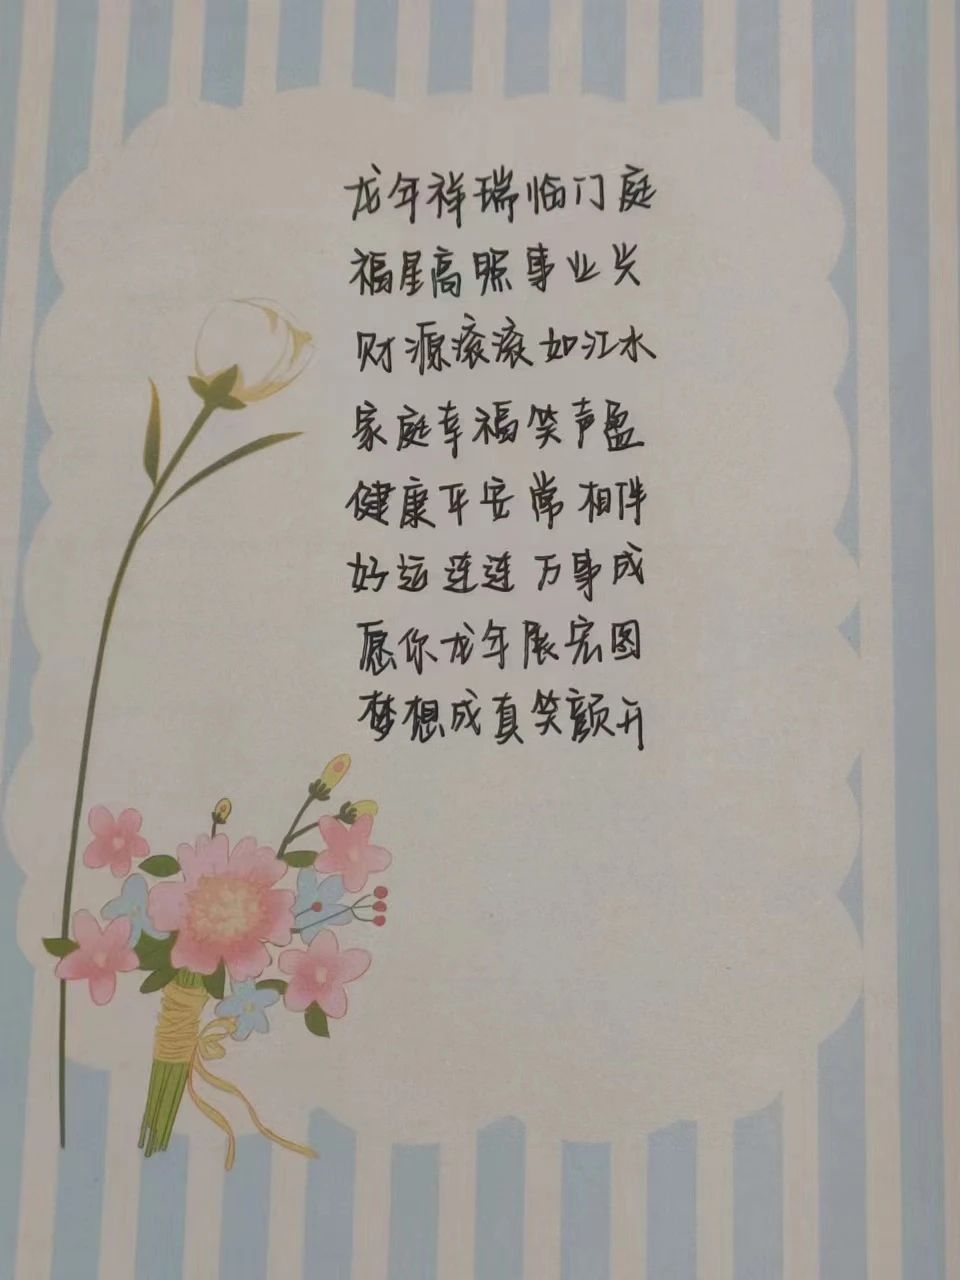 龙年祥瑞临门庭
福星高照事业兴
财源滚滚如江水
家庭幸福笑声盈
健康平安常相伴
好运连连万事成
愿你龙年展宏图
梦想成真笑颜开